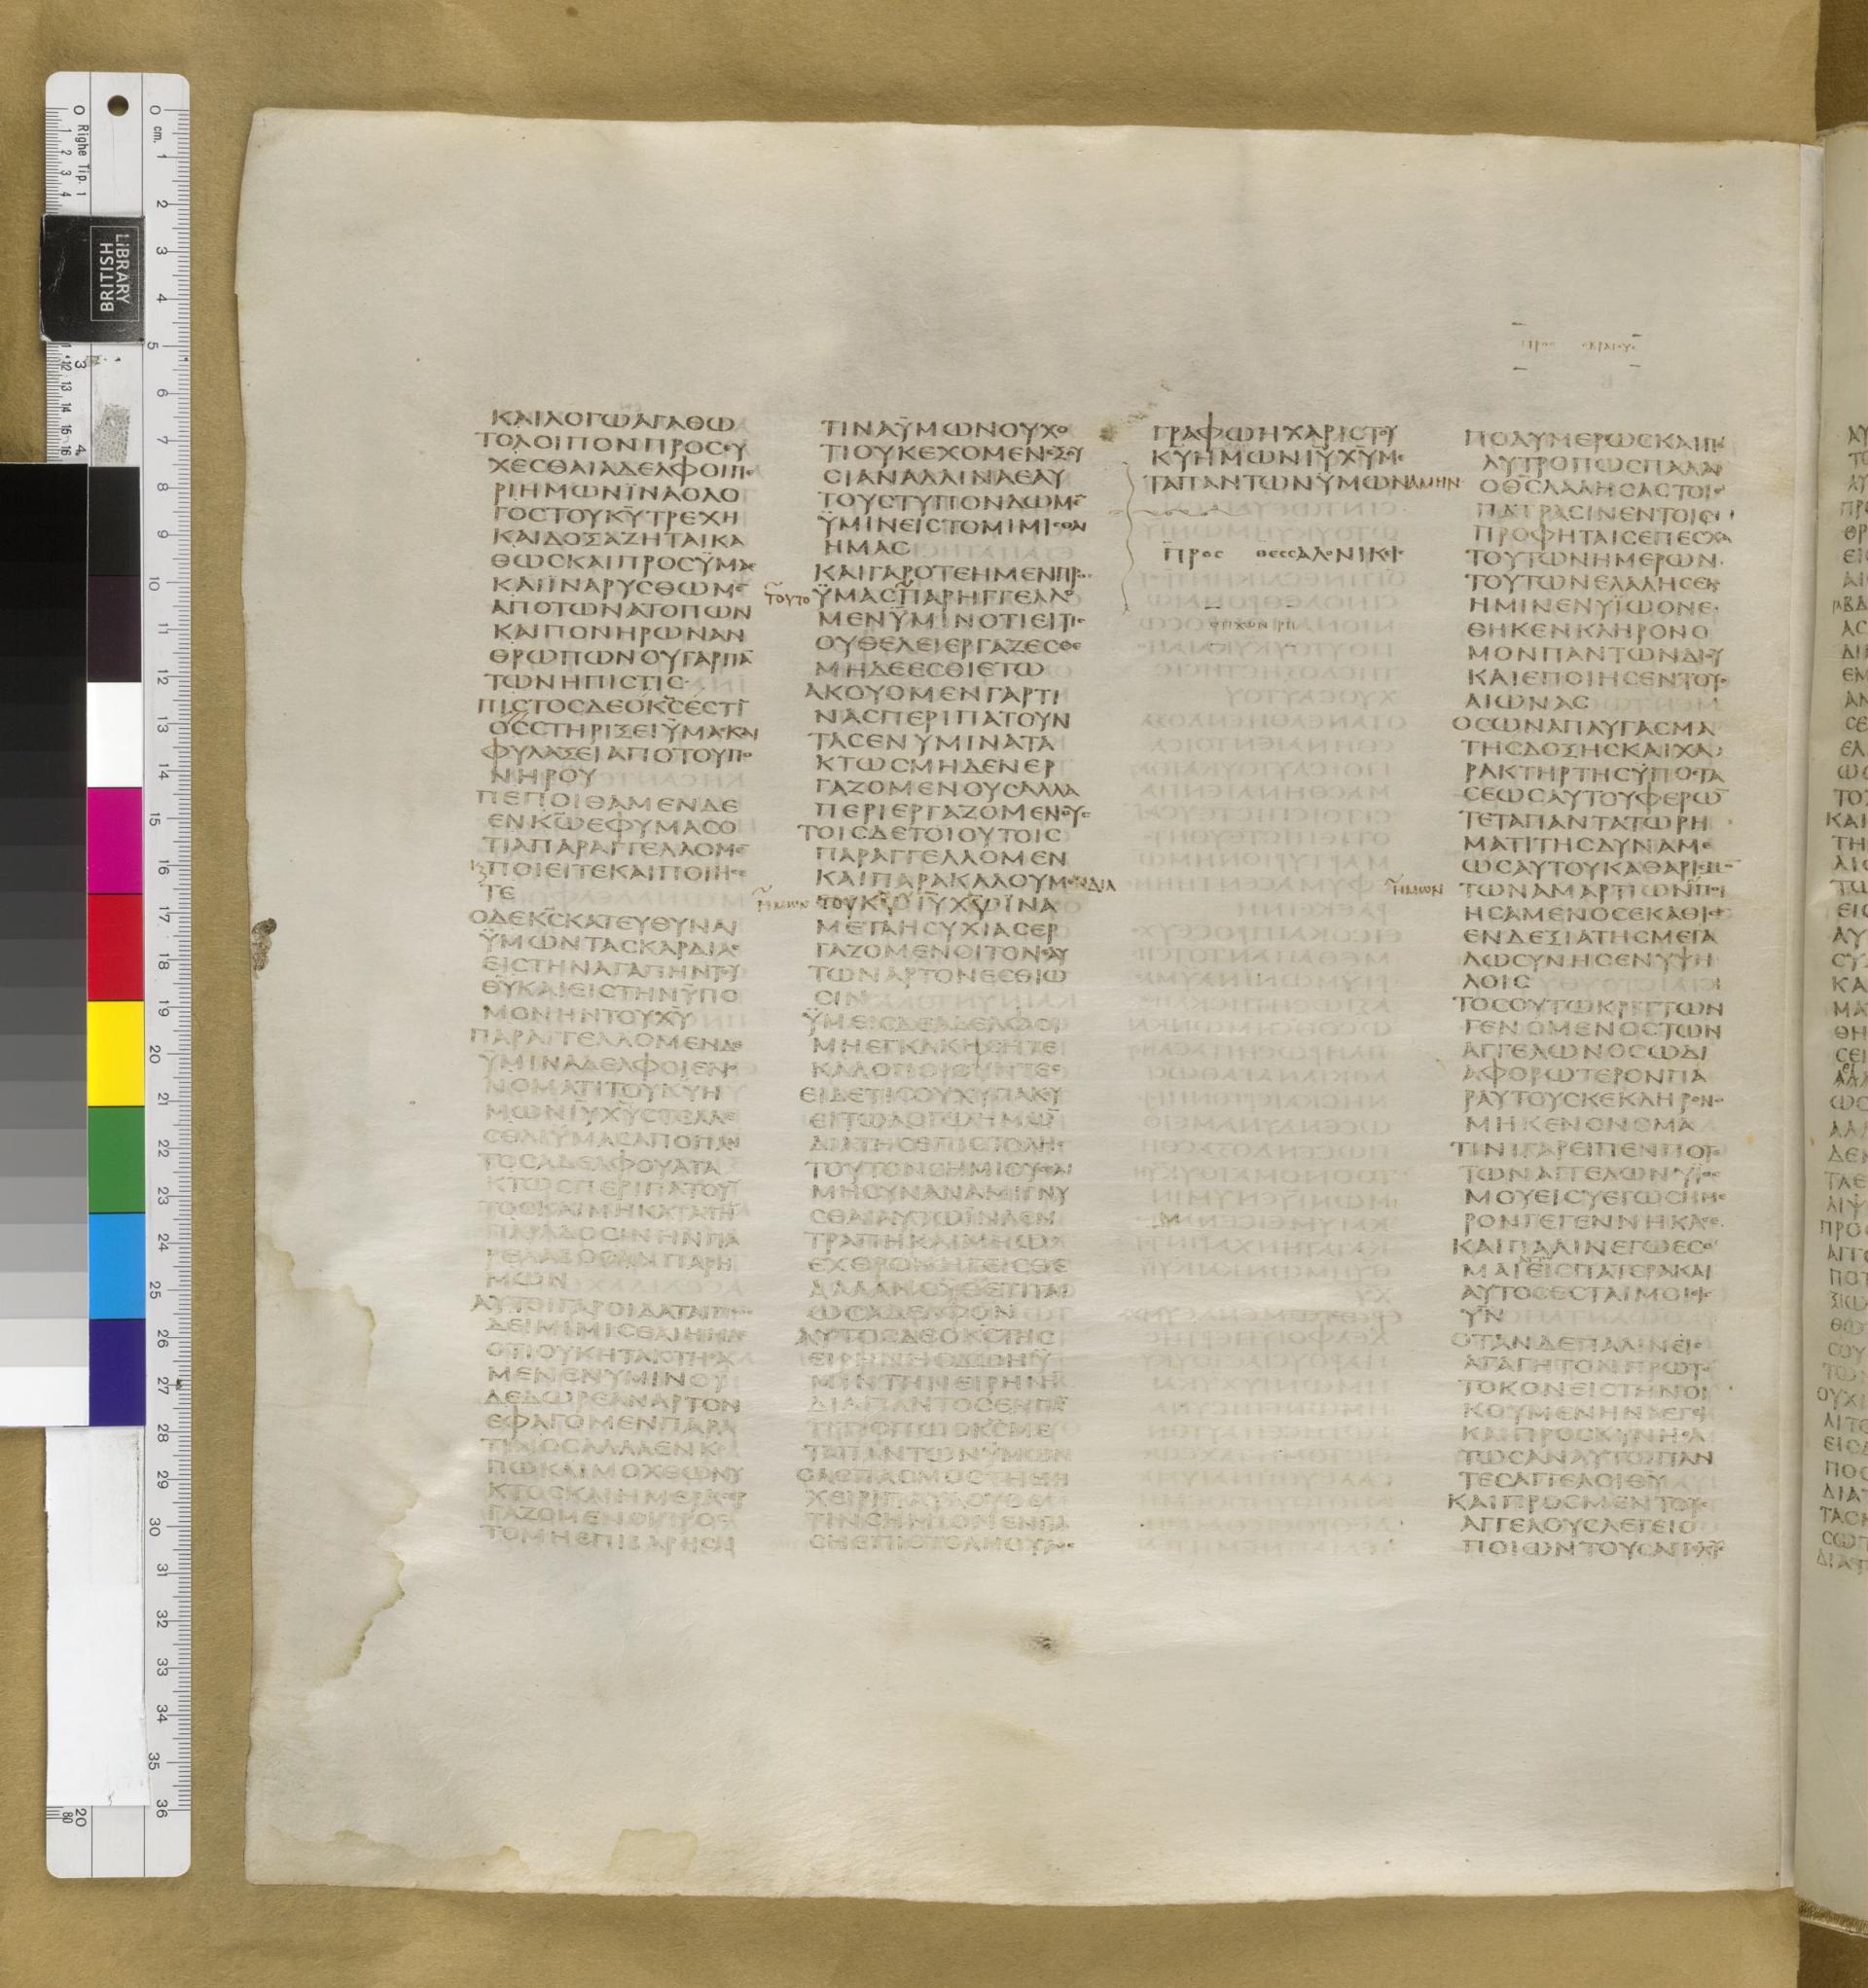 ΚΑΙΛΟΓΩΑΓΑΘΩ
ΤΟΛΟΙΠΟΝΠΡΟϹΕΥ
ΧΕϹΘΑΙΑΔΕΛΦΟΙΠΕ
ΡΙΗΜΩΝΪΝΑΟΛΟ
ΓΟϹΤΟΥΚΥ̅ΤΡΕΧΗ
ΚΑΙΔΟΞΑΖΗΤΑΙΚΑ
ΘΩϹΚΑΙΠΡΟϹΫΜΑϹ
ΚΑΙΪΝΑΡΥϹΘΩΜΕ̅
ΑΠΟΤΩΝΑΤΟΠΩΝ
ΚΑΙΠΟΝΗΡΩΝΑΝ
ΘΡΩΠΩΝΟΥΓΑΡΠΑ̅
ΤΩΝΗΠΙϹΤΙϹ
ΠΙϹΤΟϹΔΕΟΚ̅Ϲ̅ΕϹΤΙ̅
ΟϹϹΤΗΡΙΞΕΙΫΜΑϹΚΑΙ
ΦΥΛΑΞΕΙΑΠΟΤΟΥΠΟ
ΝΗΡΟΥ
ΠΕΠΟΙΘΑΜΕΝΔΕ
ΕΝΚ̅Ω̅ΕΦΥΜΑϹΟ
ΤΙΑΠΑΡΑΓΓΕΛΛΟΜΕ̅
ΚΑΙΠΟΙΕΙΤΕΚΑΙΠΟΙΗϹΕ
ΤΕ
ΟΔΕΚ̅Ϲ̅ΚΑΤΕΥΘΥΝΑΙ
ΫΜΩΝΤΑϹΚΑΡΔΙΑϹ
ΕΙϹΤΗΝΑΓΑΠΗΝΤΟΥ
Θ̅Υ̅ΚΑΙΕΙϹΤΗΝΫΠΟ
ΜΟΝΗΝΤΟΥΧ̅Υ̅
ΠΑΡΑΓΓΕΛΛΟΜΕΝΔΕ
ΫΜΙΝΑΔΕΛΦΟΙΕΝΟ
ΝΟΜΑΤΙΤΟΥΚ̅Υ̅Η
ΜΩΝΙ̅Υ̅Χ̅Υ̅ϹΤΕΛΛΕ
ϹΘΑΙΫΜΑϹΑΠΟΠΑΝ
ΤΟϹΑΔΕΛΦΟΥΑΤΑ
ΚΤΩϹΠΕΡΙΠΑΤΟΥ̅
ΤΟϹΚΑΙΜΗΚΑΤΑΤΗ̅
ΠΑΡΑΔΟϹΙΝΗΝΠΑ
ΡΕΛΑΒΟϹΑΝΠΑΡΗ
ΜΩΝ
ΔΕΙΜΙΜΙϹΘΑΙΗΜΑϹ
ΟΤΙΟΥΚΗΤΑΚΤΗϹΑ
ΜΕΝΕΝΥΜΙΝΟΥ
ΔΕΔΩΡΕΑΝΑΡΤΟΝ
ΕΦΑΓΟΜΕΝΠΑΡΑ
ΤΙΝΟϹΑΛΛΑΕΝΚΟ
ΠΩΚΑΙΜΟΧΘΩΝΥ
ΚΤΟϹΚΑΙΗΜΕΡΑϹΕΡ
ΓΑΖΟΜΕΝΟΙΠΡΟϹ
ΤΟΜΗΕΠΙΒΑΡΗϹΑΙ
ΤΙΝΑΫΜΩΝΟΥΧΟ
ΤΙΟΥΚΕΧΟΜΕΝΕΞΟΥ
ϹΙΑΝΑΛΛΙΝΑΕΑΥ
ΤΟΥϹΤΥΠΟΝΔΩΜΕ̅
ΫΜΙΝΕΙϹΤΟΜΙΜΙϹΘΑΙ
ΗΜΑϹ
ΚΑΙΓΑΡΟΤΕΗΜΕΝΠΡΟϹ
ΤΟΥΤΟ ΫΜΑϹΠΑΡΗΓΓΕΛΛΟ
ΜΕΝΫΜΙΝΟΤΙΕΙΤΙϹ
ΟΥΘΕΛΕΙΕΡΓΑΖΕϹΘΕ
ΜΗΔΕΕϹΘΙΕΤΩ
ΑΚΟΥΟΜΕΝΓΑΡΤΙ
ΝΑϹΠΕΡΙΠΑΤΟΥΝ
ΤΑϹΕΝΥΜΙΝΑΤΑ
ΚΤΩϹΜΗΔΕΝΕΡ
ΓΑΖΟΜΕΝΟΥϹΑΛΛΑ
ΠΕΡΙΕΡΓΑΖΟΜΕΝΟΥϹ
ΤΟΙϹΔΕΤΟΙΟΥΤΟΙϹ
ΠΑΡΑΓΓΕΛΛΟΜΕΝ
ΚΑΙΠΑΡΑΚΑΛΟΥΜΕΝΔΙΑ
ΗΜΩΝ ΤΟΥΚ̅Ω̅Ι̅Υ̅Χ̅Ω̅ΪΝΑ
ΜΕΤΑΗϹΥΧΙΑϹΕΡ
ΓΑΖΟΜΕΝΟΙΤΟΝΕΑΥ
ΤΩΝΑΡΤΟΝΕϹΘΙΩ
ϹΙΝ
ΫΜΕΙϹΔΕΑΔΕΛΦΟΙ
ΜΗΕΓΚΑΚΗϹΗΤΕ
ΚΑΛΟΠΟΙΟΥΝΤΕϹ
ΕΙΔΕΤΙϹΟΥΧΥΠΑΚΟΥ
ΕΙΤΩΛΟΓΩΗΜΩ̅
ΔΙΑΤΗϹΕΠΙϹΤΟΛΗϹ
ΤΟΥΤΟΝϹΗΜΙΟΥϹΘΑΙ
ΜΗϹΥΝΑΝΑΜΙΓΝΥ
ϹΘΑΙΑΥΤΩΪΝΑΕΝ
ΤΡΑΠΗΚΑΙΜΗΩϹ
ΕΧΘΡΟΝΗΓΕΙϹΘΕ
ΑΛΛΑΝΟΥΘΕΤΙΤΑΙ
ΩϹΑΔΕΛΦΟΝ
ΑΥΤΟϹΔΕΟΚ̅Ϲ̅ΤΗϹ
ΕΙΡΗΝΗϹΔΩΗΫ
ΜΙΝΤΗΝΕΙΡΗΝΗ̅
ΔΙΑΠΑΝΤΟϹΕΝΠΑ̅
ΤΙΤΡΟΠΩΟΚ̅Ϲ̅ΜΕ
ΤΑΠΑΝΤΩΝΫΜΩΝ
ΟΑϹΠΑϹΜΟϹΤΗΕΜΗ
ΧΕΙΡΙΠΑΥΛΟΥΟΕϹ
ΤΙΝϹΗΜΙΟΝΕΝΠΑ
ϹΗΕΠΙϹΤΟΛΗΟΥΤΩϹ
ΓΡΑΦΩΗΧΑΡΙϹΤΟΥ
Κ̅Υ̅ΗΜΩΝΙ̅Υ̅Χ̅Υ̅ΜΕ
ΤΑΠΑΝΤΩΝΫΜΩΝΑΜΗΝ
ΠΡΟϹ ΘΕϹϹΑΛΟΝΙΚΕΙϹ
ϹΤΙΧΩΝ Ρ̅Π̅
ΠΡΟϹ ΕΒΡΑΙΟΥϹ
ΠΟΛΥΜΕΡΩϹΚΑΙΠΟ
ΛΥΤΡΟΠΩϹΠΑΛΑΙ
ΟΘ̅Ϲ̅ΛΑΛΗϹΑϹΤΟΙϹ
ΠΑΤΡΑϹΙΝΕΝΤΟΙϹ
ΠΡΟΦΗΤΑΙϹΕΠΕϹΧΑ
ΤΟΥΤΩΝΗΜΕΡΩΝ
ΤΟΥΤΩΝΕΛΑΛΗϹΕΝ
ΗΜΙΝΕΝΥΪΩΟΝΕ
ΘΗΚΕΝΚΛΗΡΟΝΟ
ΜΟΝΠΑΝΤΩΝΔΙΟΥ
ΚΑΙΕΠΟΙΗϹΕΝΤΟΥϹ
ΑΙΩΝΑϹ
ΟϹΩΝΑΠΑΥΓΑϹΜΑ
ΤΗϹΔΟΞΗϹΚΑΙΧΑ
ΡΑΚΤΗΡΤΗϹΫΠΟϹΤΑ
ϹΕΩϹΑΥΤΟΥΦΕΡΩ̅
ΤΕΤΑΠΑΝΤΑΤΩΡΗ
ΜΑΤΙΤΗϹΔΥΝΑΜΕ
ΩϹΑΥΤΟΥΚΑΘΑΡΙϹΜΟ̅
ΗΜΩΝ ΤΩΝΑΜΑΡΤΙΩΝΠΟΙ
ΗϹΑΜΕΝΟϹΕΚΑΘΙϹΕ
ΕΝΔΕΞΙΑΤΗϹΜΕΓΑ
ΛΩϹΥΝΗϹΕΝΥΨΗ
ΛΟΙϹ
ΤΟϹΟΥΤΩΚΡΕΙΤΤΩΝ
ΓΕΝΟΜΕΝΟϹΤΩΝ
ΑΓΓΕΛΩΝΟϹΩΔΙ
ΑΦΟΡΩΤΕΡΟΝΠΑ
ΡΑΥΤΟΥϹΚΕΚΛΗΡΟΝΟ
ΜΗΚΕΝΟΝΟΜΑ
ΤΙΝΙΓΑΡΕΙΠΕΝΠΟΤΕ
ΤΩΝΑΓΓΕΛΩΝΥΪΟϹ
ΜΟΥΕΙϹΥΕΓΩϹΗΜΕ
ΡΟΝΓΕΓΕΝΝΗΚΑϹΕ
ΚΑΙΠΑΛΙΝΕΓΩΕϹΟ
ΜΑΙΕΙϹΠΑΤΕΡΑΚΑΙ
ΑΥΤΟϹΕϹΤΑΙΜΟΙΕΙϹ
Υ̅Ν̅
ΟΤΑΝΔΕΠΑΛΙΝΕΙϹ
ΑΓΑΓΗΤΟΝΠΡΩΤΟ
ΤΟΚΟΝΕΙϹΤΗΝΟΙ
ΚΟΥΜΕΝΗΝΛΕΓΕΙ
ΚΑΙΠΡΟϹΚΥΝΗϹΑ
ΤΩϹΑΝΑΥΤΩΠΑΝ
ΤΕϹΑΓΓΕΛΟΙΘ̅Υ̅
ΚΑΙΠΡΟϹΜΕΝΤΟΥϹ
ΑΓΓΕΛΟΥϹΛΕΓΕΙΟ
ΠΟΙΩΝΤΟΥϹΑΓΓΕ
LIBRARY
BRITISH
Righe Tip. 1
cm.